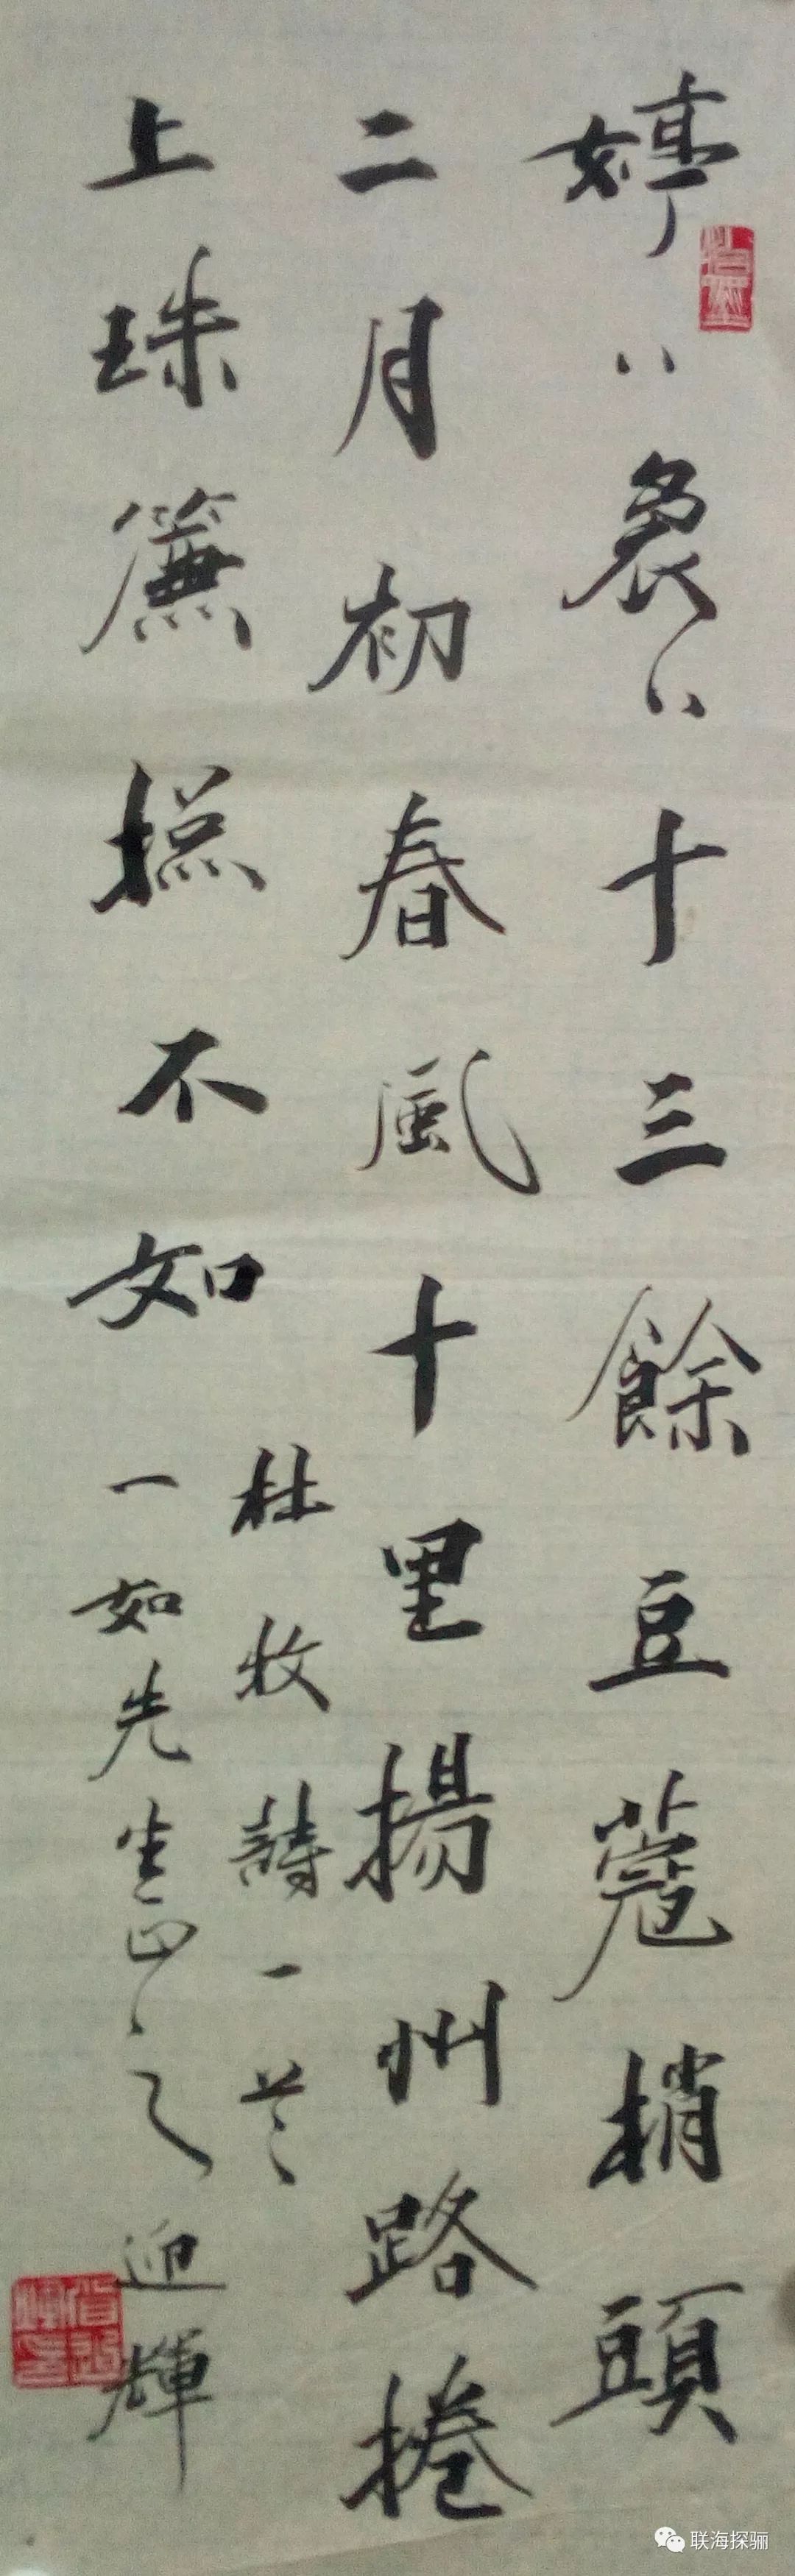 婷〻裊〻十三餘豆蔻梢頭
二月初春風十里揚州路捲
上珠簾摠不如
杜牧詩一首
一如先生正之迎輝
联海探骊